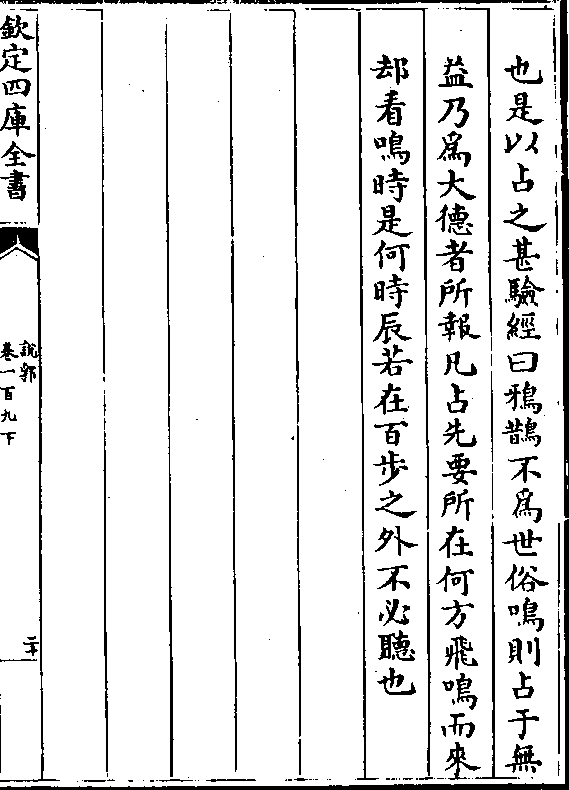 也是以占之甚驗經曰鴉鵲不為世俗鳴則占于無
益乃爲大德者所報凡占先要所在何方飛鳴而來
却看鳴時是何時辰若在百步之外不必聽也
欽定四庫全書
說郛
卷一百九下
二十